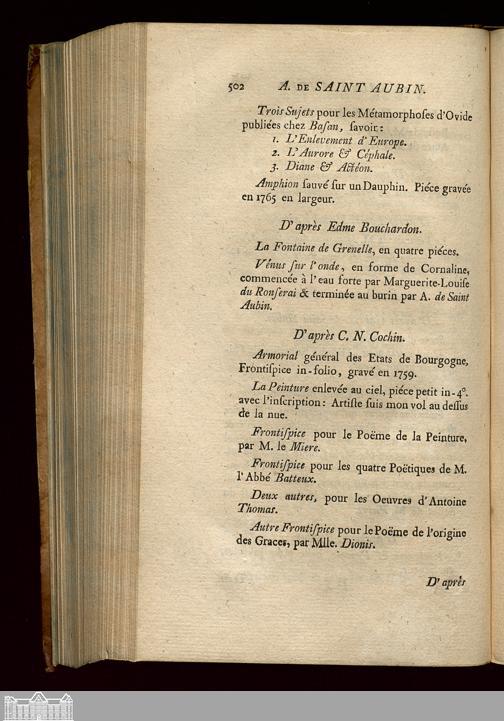 502 A. DE SAINT AUBIN.
Trois Sujets pour les Métamorphoſes d'Ovide
publiées chez Baſan, ſavoir:
1. L'Enlevement d'Europe.
2. L'Aurore & Céphale.
3. Diane & Actéon.
Amphion ſauvé ſur un Dauphin. Piéce gravée
en 1765 en largeur.
D'après Edme Bouchardon.
La Fontaine de Grenelle, en quatre piéces.
Vénus ſur l'onde, en forme de Cornaline,
commencée à l'eau forte par Marguerite-Louiſe
du Ronſerai & terminée au burin par A. de Saint
Aubin.
D'après C. N. Cochin.
Armorial général des Etats de Bourgogne,
Frontiſpice in-folio, gravé en 1759.
La Peinture enlevée au ciel, piéce petit in-4°.
avec l'inſcription: Artiſte ſuis mon vol au deſſus
de la nue.
Frontiſpice pour le Poëme de la Peinture,
par M. le Miere.
Frontiſpice pour les quatre Poëtiques de M.
l'Abbé Batteux.
Deux autres, pour les Oeuvres d'Antoine
Thomas.
Autre Frontiſpice pour le Poëme de l'origine
des Graces, par Mlle. Dionis.
D'après